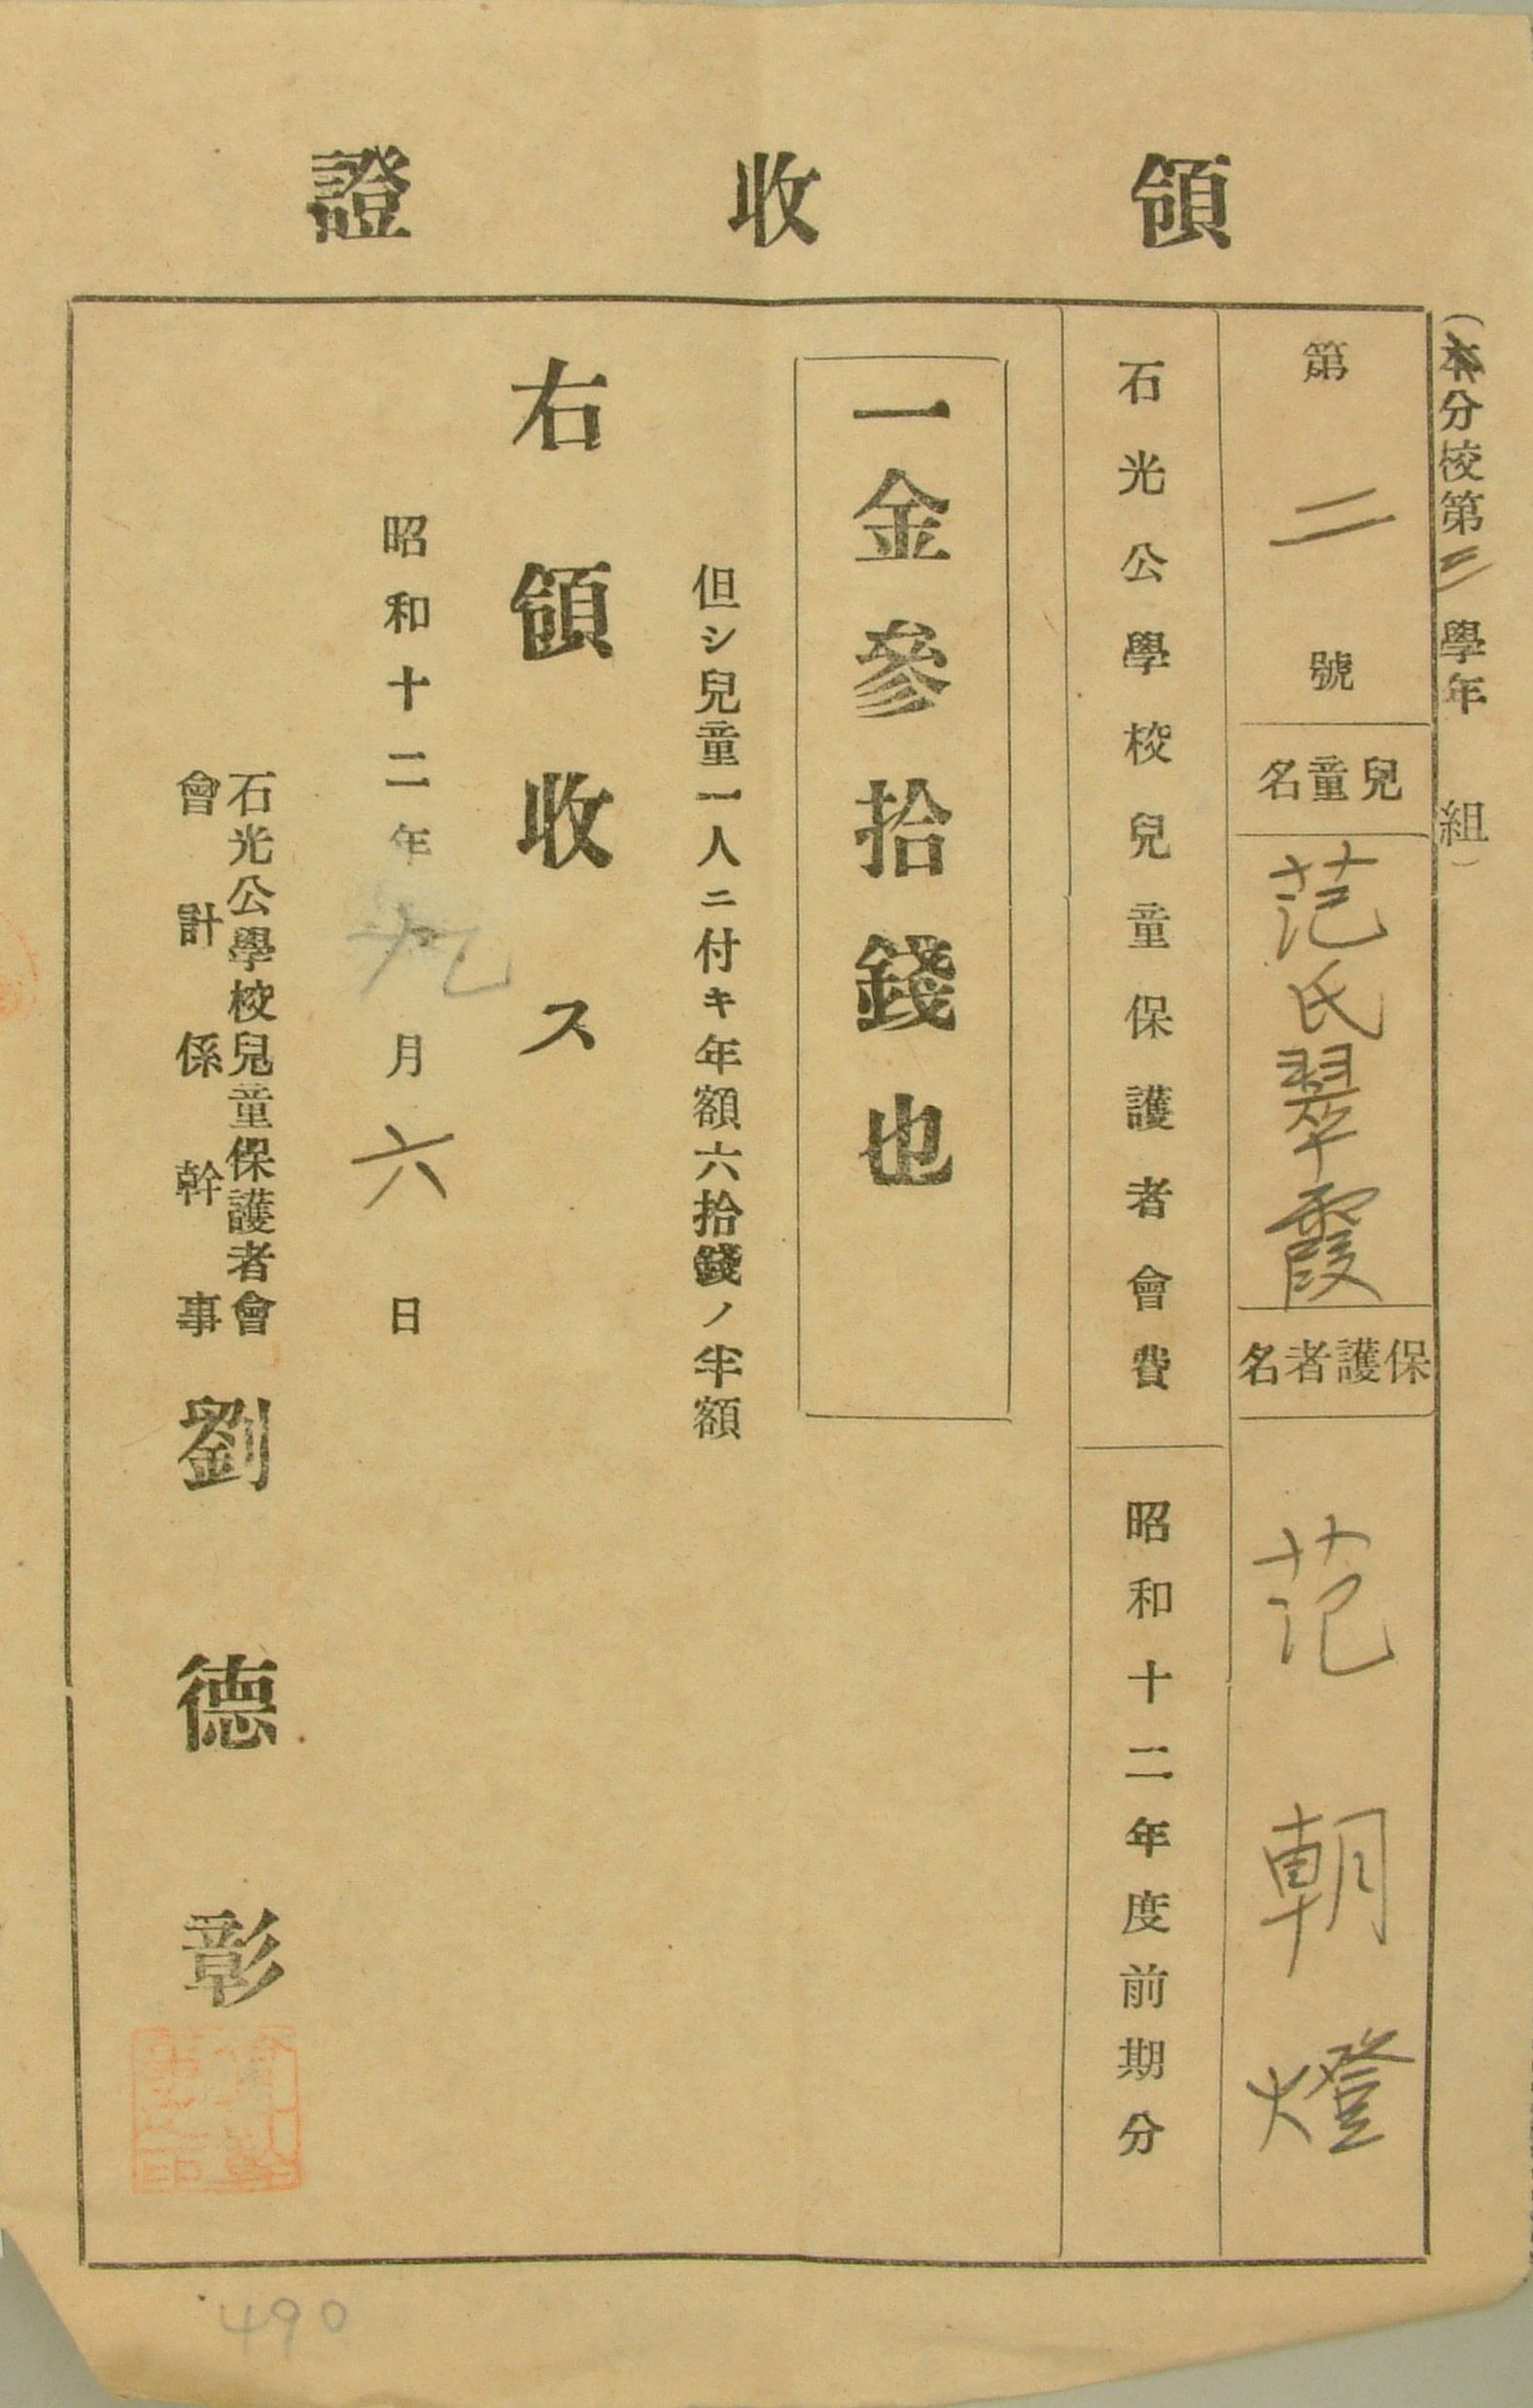 領收證
(本分校第二學年 組)
第二號
兒童名
范氏翠霞
保護者名
范朝燈
石光公學校兒童保護者會費
昭和十二年度前期分
一金參拾錢也
但シ兒童一人ニ付キ年額六拾錢ノ半額
右領收ス
昭和十二年九月六日
石光公學校兒童保護者會
會計係幹事
劉德彰
490